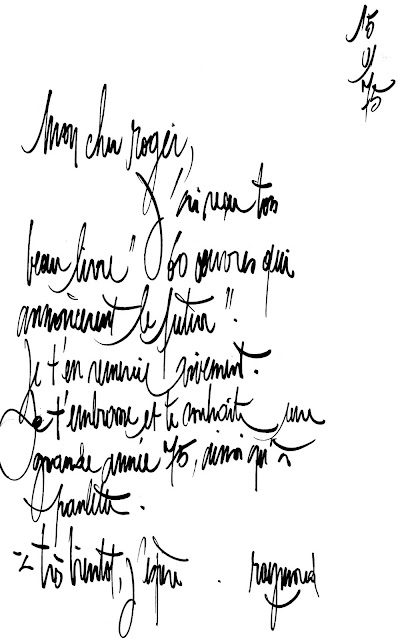 15
01
75
Mon cher roger,
J'ai reçu ton
beau livre " 60 œuvres qui
annoncèrent le futur ".
Je t'en remercie vivement.
Je t'embrasse et te souhaite une
grande année 75, ainsi qu'à
paulette.
à très bientôt, j'espère . raymond